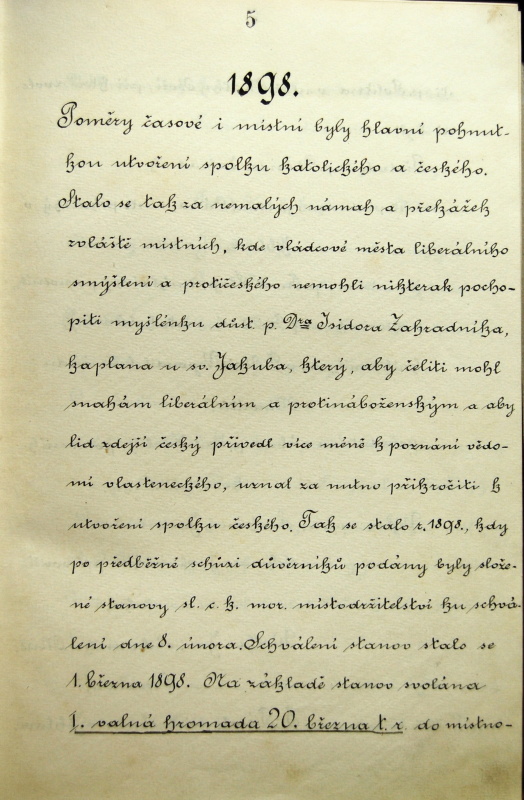 5
1898.
Poměry časové i místní byly hlavní pohnut-
kou utvoření spolku katolického a českého.
Stalo se tak za nemalých námah a překážek
zvláště místních, kde vládcové města liberálního
smýšlení a protičeského nemohli nikterak pocho-
piti myšlénku důst. p. Dra Isidora Zahradníka,
kaplana u sv. Jakuba, který, aby čeliti mohl
snahám liberálním a protináboženským a aby
lid zdejší český přivedl více méně k poznání vědo-
mí vlasteneckého, uznal za nutno přikročiti k
utvoření spolku českého. Tak se stalo r. 1898., kdy
po předběžné schůzi důvěrníků podány byly slože-
né stanovy sl. c. k. mor. místodržitelství ku schvá-
lení dne 8. února. Schválení stanov stalo se
1. března 1898. Na základě stanov svolána
I. valná hromada 20. března t. r. do místno-